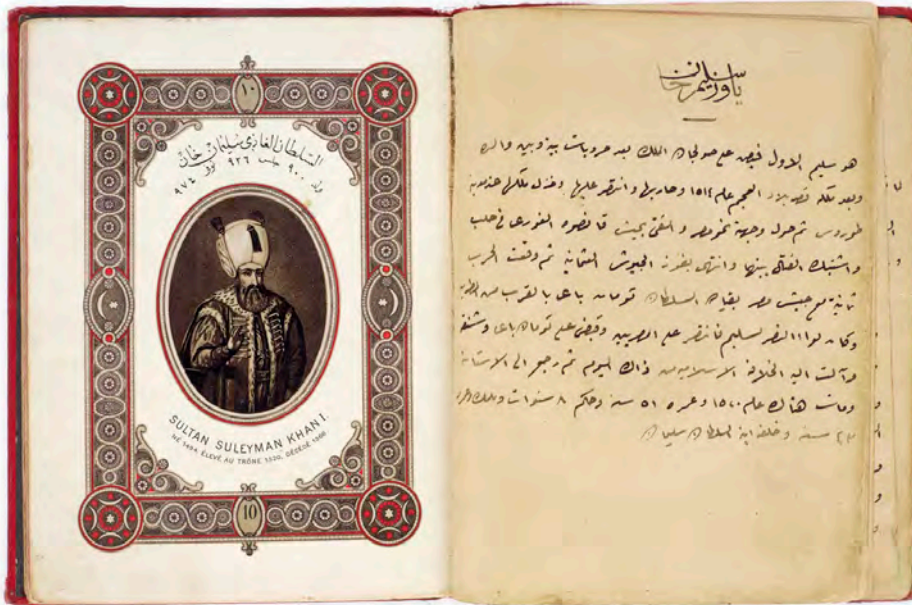 ١٠
السلطان الغازی سلیمان خان
ولد ٩٠٠ جلس ٩٢٦ توفی ٩٧٤
SULTAN SULEYMAN KHAN I.
NÉ 1494, ÉLEVÉ AU TRÔNE 1520, DÉCÉDÉ 1566
10
ياوز سليم خان
هو سليم الاول قبض على صولجان الملك بعد حروبات بينه وبين والده
وبعد تملكه قصد بلاد العجم عام ١٥١٤ وحاربها وانتصر عليها
طوروس ثم حول وجهة نحو مصر والتقى بجيش قانصوه الغورى فى حلب
واشتبك القتال بينهما وانتهى بفوز الجيوش العثمانية ثم وقعت الحرب
ثانية مع جيش مصر بقيادة السلطان تومان باى بالقرب من
وكان لواء النصر لسليم فانتصر على المصريين وقبض على تومان باى وشنقه
وآلت اليه الخلافة الاسلامية من ذاك اليوم ثم رجع الى الاستانة
ومات هناك عام ١٥٢٠ وعمره ٥١ سنة وحكم ٨ سنوات
سنة وخلفه ابنه السلطان سليمان